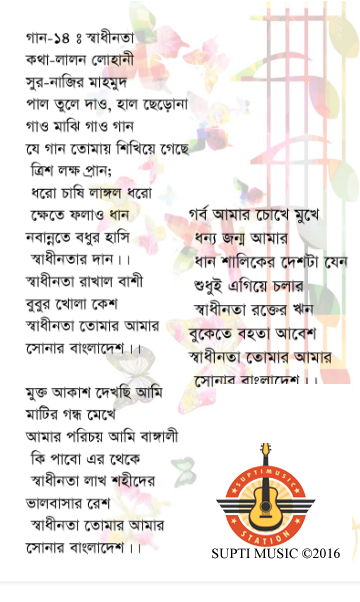 গান-১৪ ঃ স্বাধীনতা
কথা-লালন লোহানী
সুর-নাজির মাহমুদ
পাল তুলে দাও, হাল ছেড়োনা
গাও মাঝি গাও গান
যে গান তোমায় শিখিয়ে গেছে
ত্রিশ লক্ষ প্রান;
ধরো চাষি লাঙ্গল ধরো
ক্ষেতে ফলাও ধান
নবান্নতে বধুর হাসি
স্বাধীনতার দান।।
স্বাধীনতা রাখাল বাশী
বুবুর খোলা কেশ
স্বাধীনতা তোমার আমার
সোনার বাংলাদেশ।।
মুক্ত আকাশ দেখছি আমি
মাটির গন্ধ মেখে
আমার পরিচয় আমি বাঙ্গালী
কি পাবো এর থেকে
স্বাধীনতা লাখ শহীদের
ভালবাসার রেশ
স্বাধীনতা তোমার আমার
সোনার বাংলাদেশ।।
গর্ব আমার চোখে মুখে
ধন্য জন্ম আমার
ধান শালিকের দেশটা যেন
শুধুই এগিয়ে চলার
স্বাধীনতা রক্তের ঋন
বুকেতে বহতা আবেশ
স্বাধীনতা তোমার আমার
সোনার বাংলাদেশ।।
SUPTIMUSIC
STATION
SUPTI MUSIC ©2016